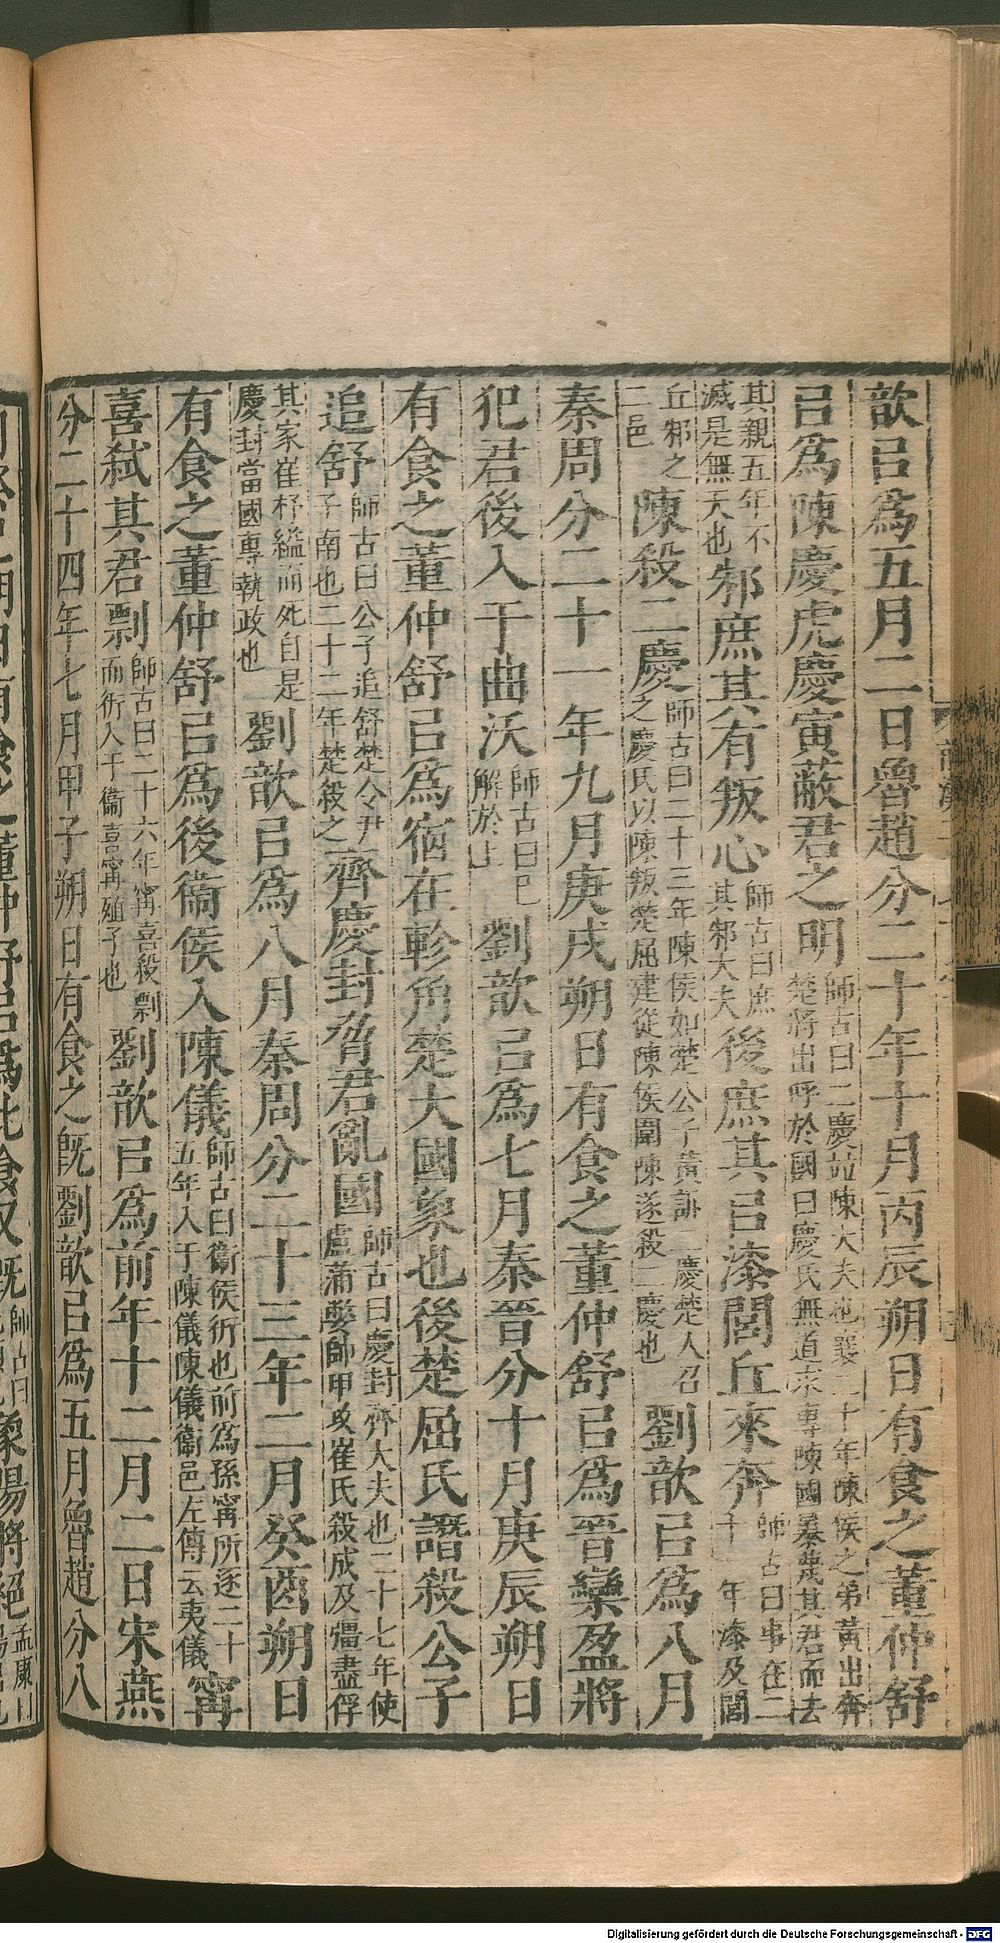 歆㠯爲五月二日魯趙分二十年十月丙辰朔日有食之董仲舒
㠯爲陳慶虎慶寅蔽君之明師古曰二慶並陳大夫也襄二十年陳侯之弟黃出奔楚將出呼於國曰慶氏無道求專陳國暴蔑其君而去
其親五年不滅是無天也邾庶其有叛心師古曰庶其邾大夫後庶其㠯漆閭丘來奔師古曰事在二十 年漆及閭
丘邾之二邑陳殺二慶師古曰二十三年陳侯如楚公子黃訴二慶楚人召之慶氏以陳叛楚屈建從陳侯圍陳遂殺二慶也劉歆㠯爲八月
秦周分二十一年九月庚戌朔日有食之董仲舒㠯爲晉欒盈將
犯君後入于曲沃師古曰已解於上劉歆㠯爲七月秦晉分十月庚辰朔日
有食之董仲舒㠯爲宿在軫角楚大國象也後楚屈氏譖殺公子
追舒師古曰公子追舒楚令尹子南也二十二年楚殺之齊慶封脅君亂國師古曰慶封齊大夫也二十七年使盧蒲嫳師甲攻崔氏殺成及彊盡俘
其家崔杼縊而死自是慶封當國專執政也劉歆㠯爲八月秦周分二十三年二月癸酉朔日
有食之董仲舒㠯爲後衞侯入陳儀師古曰衞侯衎也前爲孫甯所逐二十五年入于陳儀陳儀衞邑左傳云夷儀甯
喜弑其君剽師古曰二十六年甯喜殺剽而衎入于衞喜甯殖子也劉歆㠯爲前年十二月二日宋燕
分二十四年七月甲子朔日有食之既劉歆㠯爲五月魯趙分八
Digitalisierung gefördert durch die Deutsche Forschungsgemeinschaft - DFG